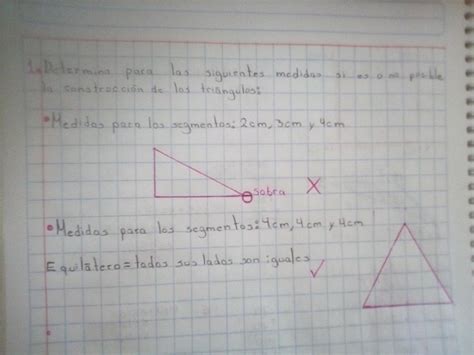 1. Determina para las siguientes medidas si es o no posible
la construcción de los triángulos:
•Medidas para los segmentos: 2cm, 3cm y 4cm
sobra X
•Medidas para los segmentos: 4cm, 4cm y 4cm
Equilátero = todos sus lados son iguales ✓